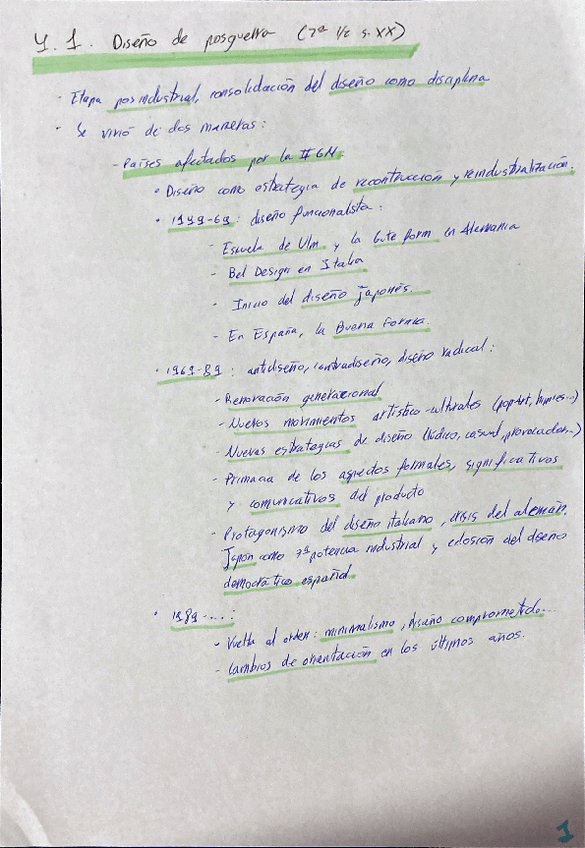 4.1. Diseño de posguerra (2ª 1/2 s. XX)
- Etapa posindustrial, consolidación del diseño como disciplina
· Se vivió de dos maneras:
- Países afectados por la II GM:
· Diseño como estrategia de recontrucción y reindustrialización.
· 1949-69: diseño funcionalista:
- Escuela de Ulm y la Gute Form en Alemania
- Bel Design en Italia
- Inicio del diseño japonés.
- En España, la Buena Forma.
· 1969-89: antidiseño, contradiseño, diseño radical:
- Renovación generacional
- Nuevos movimientos artístico-culturales (pop-art, hippies...)
- Nuevas estrategias de diseño (lúdico, casual, provocador...)
- Primacía de los aspectos formales, significativos
y comunicativos del producto
- Protagonismo del diseño italiano, crisis del alemán,
Japón como potencia industrial y eclosión del diseño
democrático español.
· 1989-...:
- Vuelta al orden: minimalismo, diseño comprometido...
- Cambios de orientación en los últimos años.
1